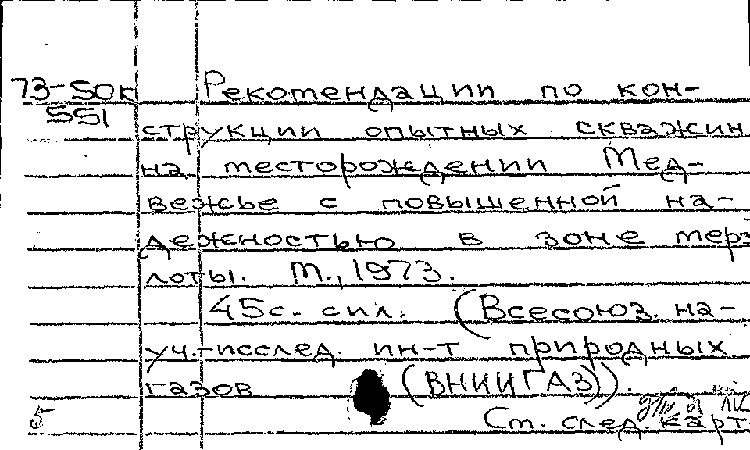 73-50к Рекомендации по кон-
551
струкции опытных скважин
на месторождении Мед-
вежье с повышенной на-
дежностью в зоне мерз
лоты. М., 1973.
45с. сил. (Всесоюз. на-
уч.-исслед. ин-т природных
газов (ВНИИГАЗ)).
5
Ст. след. карт.